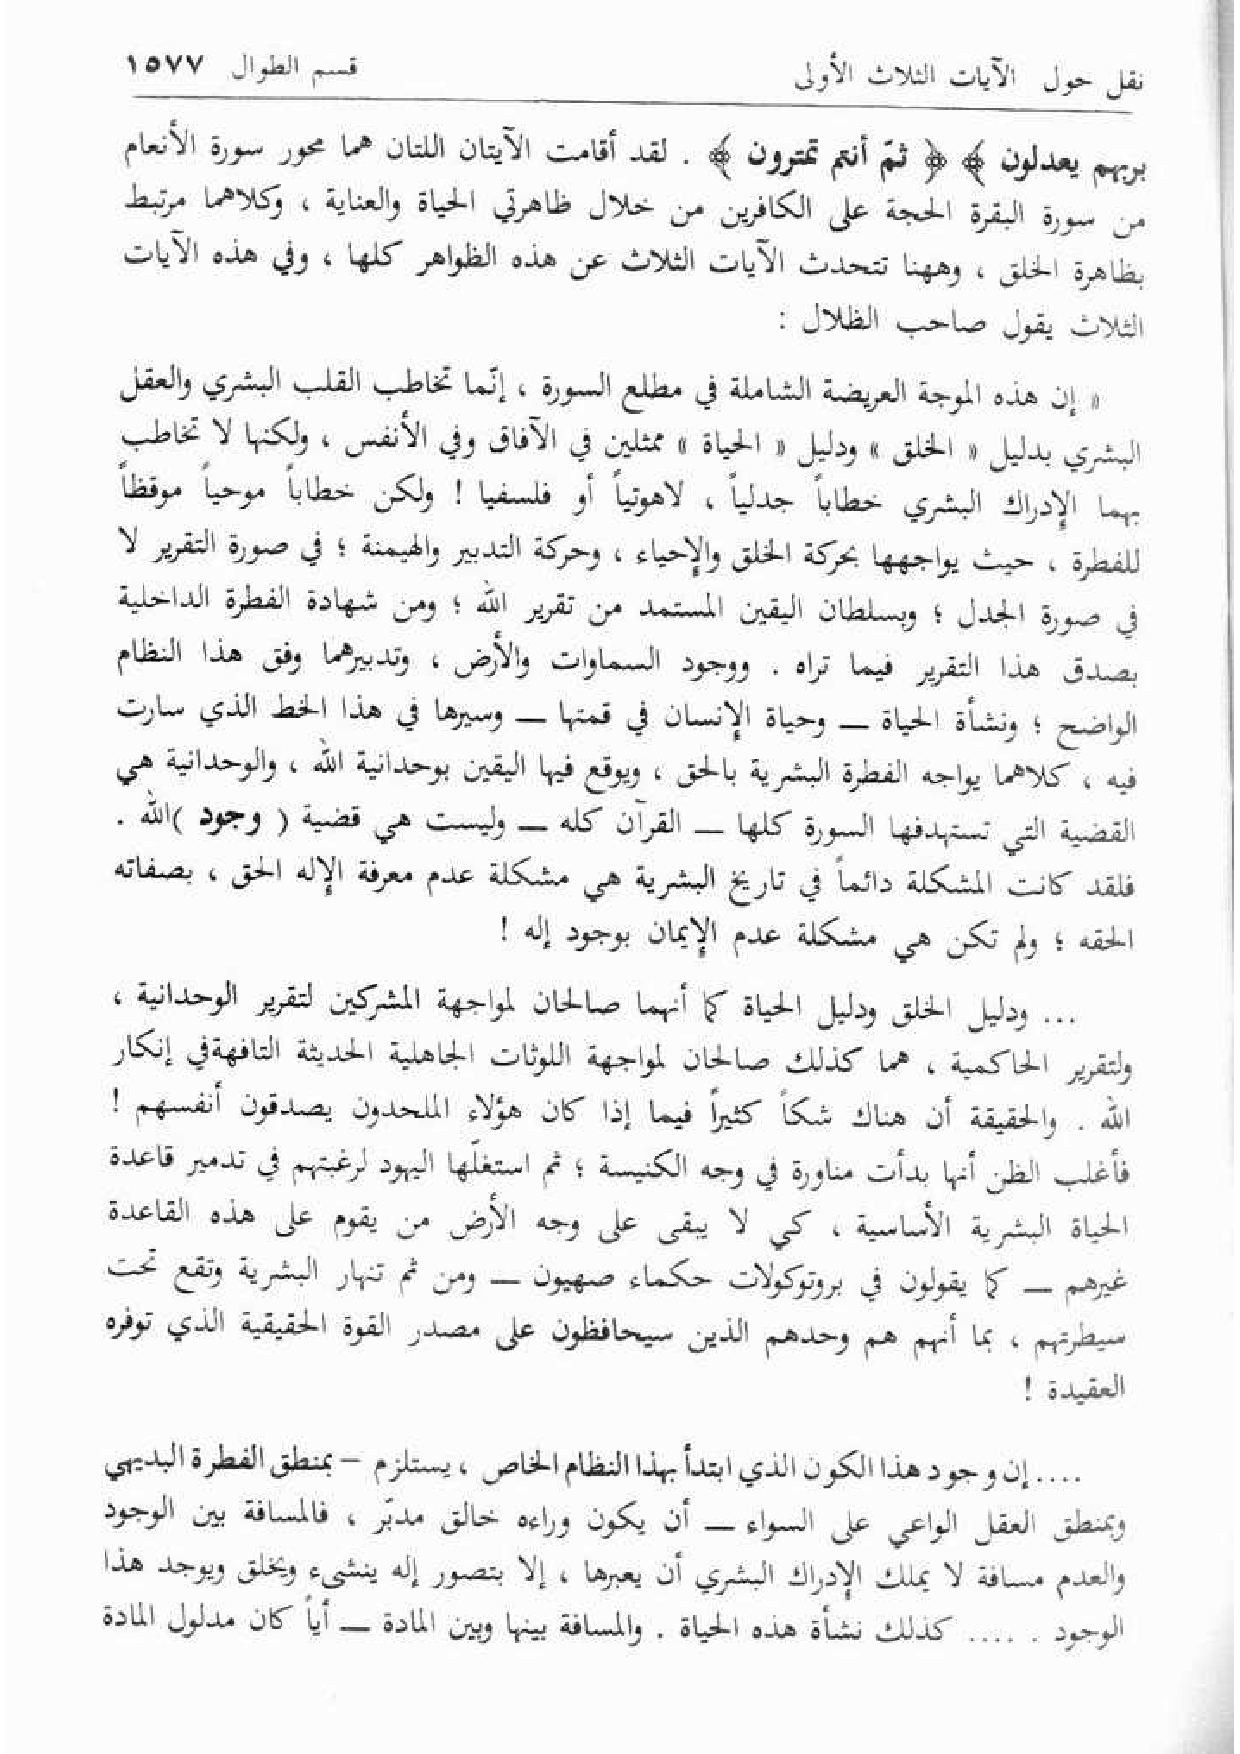 نقل حول الآيات الثلاث الأولى قسم الطوال ١٥٧٧
بربهم يعدلون ﴾ ﴿ ثمّ أنتم تمترون ﴾ . لقد أقامت الآيتان اللتان هما محور سورة الأنعام
من سورة البقرة الحجة على الكافرين من خلال ظاهرتي الحياة والعناية ، وكلاهما مرتبط
بظاهرة الخلق ، وههنا تتحدث الآيات الثلاث عن هذه الظواهر كلها ، وفي هذه الآيات
الثلاث يقول صاحب الظلال :
« إن هذه الموجة العريضة الشاملة في مطلع السورة ، إنّما تخاطب القلب البشري والعقل
البشري بدليل « الخلق » ودليل « الحياة » ممثلين في الآفاق وفي الأنفس ، ولكنها لا تخاطب
بهما الإدراك البشري خطاباً جدلياً ، لاهوتياً أو فلسفيا ! ولكن خطاباً موحياً موقظاً
للفطرة ، حيث يواجهها بحركة الخلق والإحياء ، وحركة التدبير والهيمنة ؛ في صورة التقرير لا
في صورة الجدل ؛ وبسلطان اليقين المستمد من تقرير الله ؛ ومن شهادة الفطرة الداخلية
بصدق هذا التقرير فيما تراه . ووجود السماوات والأرض ، وتدبيرهما وفق هذا النظام
الواضح ؛ ونشأة الحياة – وحياة الإنسان في قمتها – وسيرها في هذا الخط الذي سارت
فيه ، كلاهما يواجه الفطرة البشرية بالحق ، ويوقع فيها اليقين بوحدانية الله ، والوحدانية هي
القضية التي تستهدفها السورة كلها – القرآن كله – وليست هي قضية ( وجود )الله .
فلقد كانت المشكلة دائماً في تاريخ البشرية هي مشكلة عدم معرفة الإله الحق ، بصفاته
الحقه ؛ ولم تكن هي مشكلة عدم الإيمان بوجود إله !
... ودليل الخلق ودليل الحياة كما أنهما صالحان لمواجهة المشركين لتقرير الوحدانية ،
ولتقرير الحاكمية ، هما كذلك صالحان لمواجهة اللوثات الجاهلية الحديثة التافهةفي إنكار
الله . والحقيقة أن هناك شكاً كثيراً فيما إذا كان هؤلاء الملحدون يصدقون أنفسهم !
فأغلب الظن أنها بدأت مناورة في وجه الكنيسة ؛ ثم استغلّها اليهود لرغبتهم في تدمير قاعدة
الحياة البشرية الأساسية ، كي لا يبقى على وجه الأرض من يقوم على هذه القاعدة
غيرهم – كما يقولون في بروتوكولات حكماء صهيون – ومن ثم تنهار البشرية وتقع تحت
سيطرتهم ، بما أنهم هم وحدهم الذين سيحافظون على مصدر القوة الحقيقية الذي توفره
العقيدة !
.... إن وجود هذا الكون الذي ابتدأ بهذا النظام الخاص ، يستلزم – بمنطق الفطرة البديهي
وبمنطق العقل الواعي على السواء – أن يكون وراءه خالق مدبّر ، فالمسافة بين الوجود
والعدم مسافة لا يملك الإدراك البشري أن يعبرها ، إلا بتصور إله ينشىء ويخلق ويوجد هذا
الوجود . .... كذلك نشأة هذه الحياة . والمسافة بينها وبين المادة – أياً كان مدلول المادة